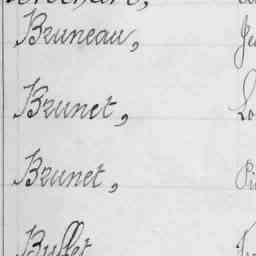 Bruneau,
Brunet,
Brunet,
Bullet